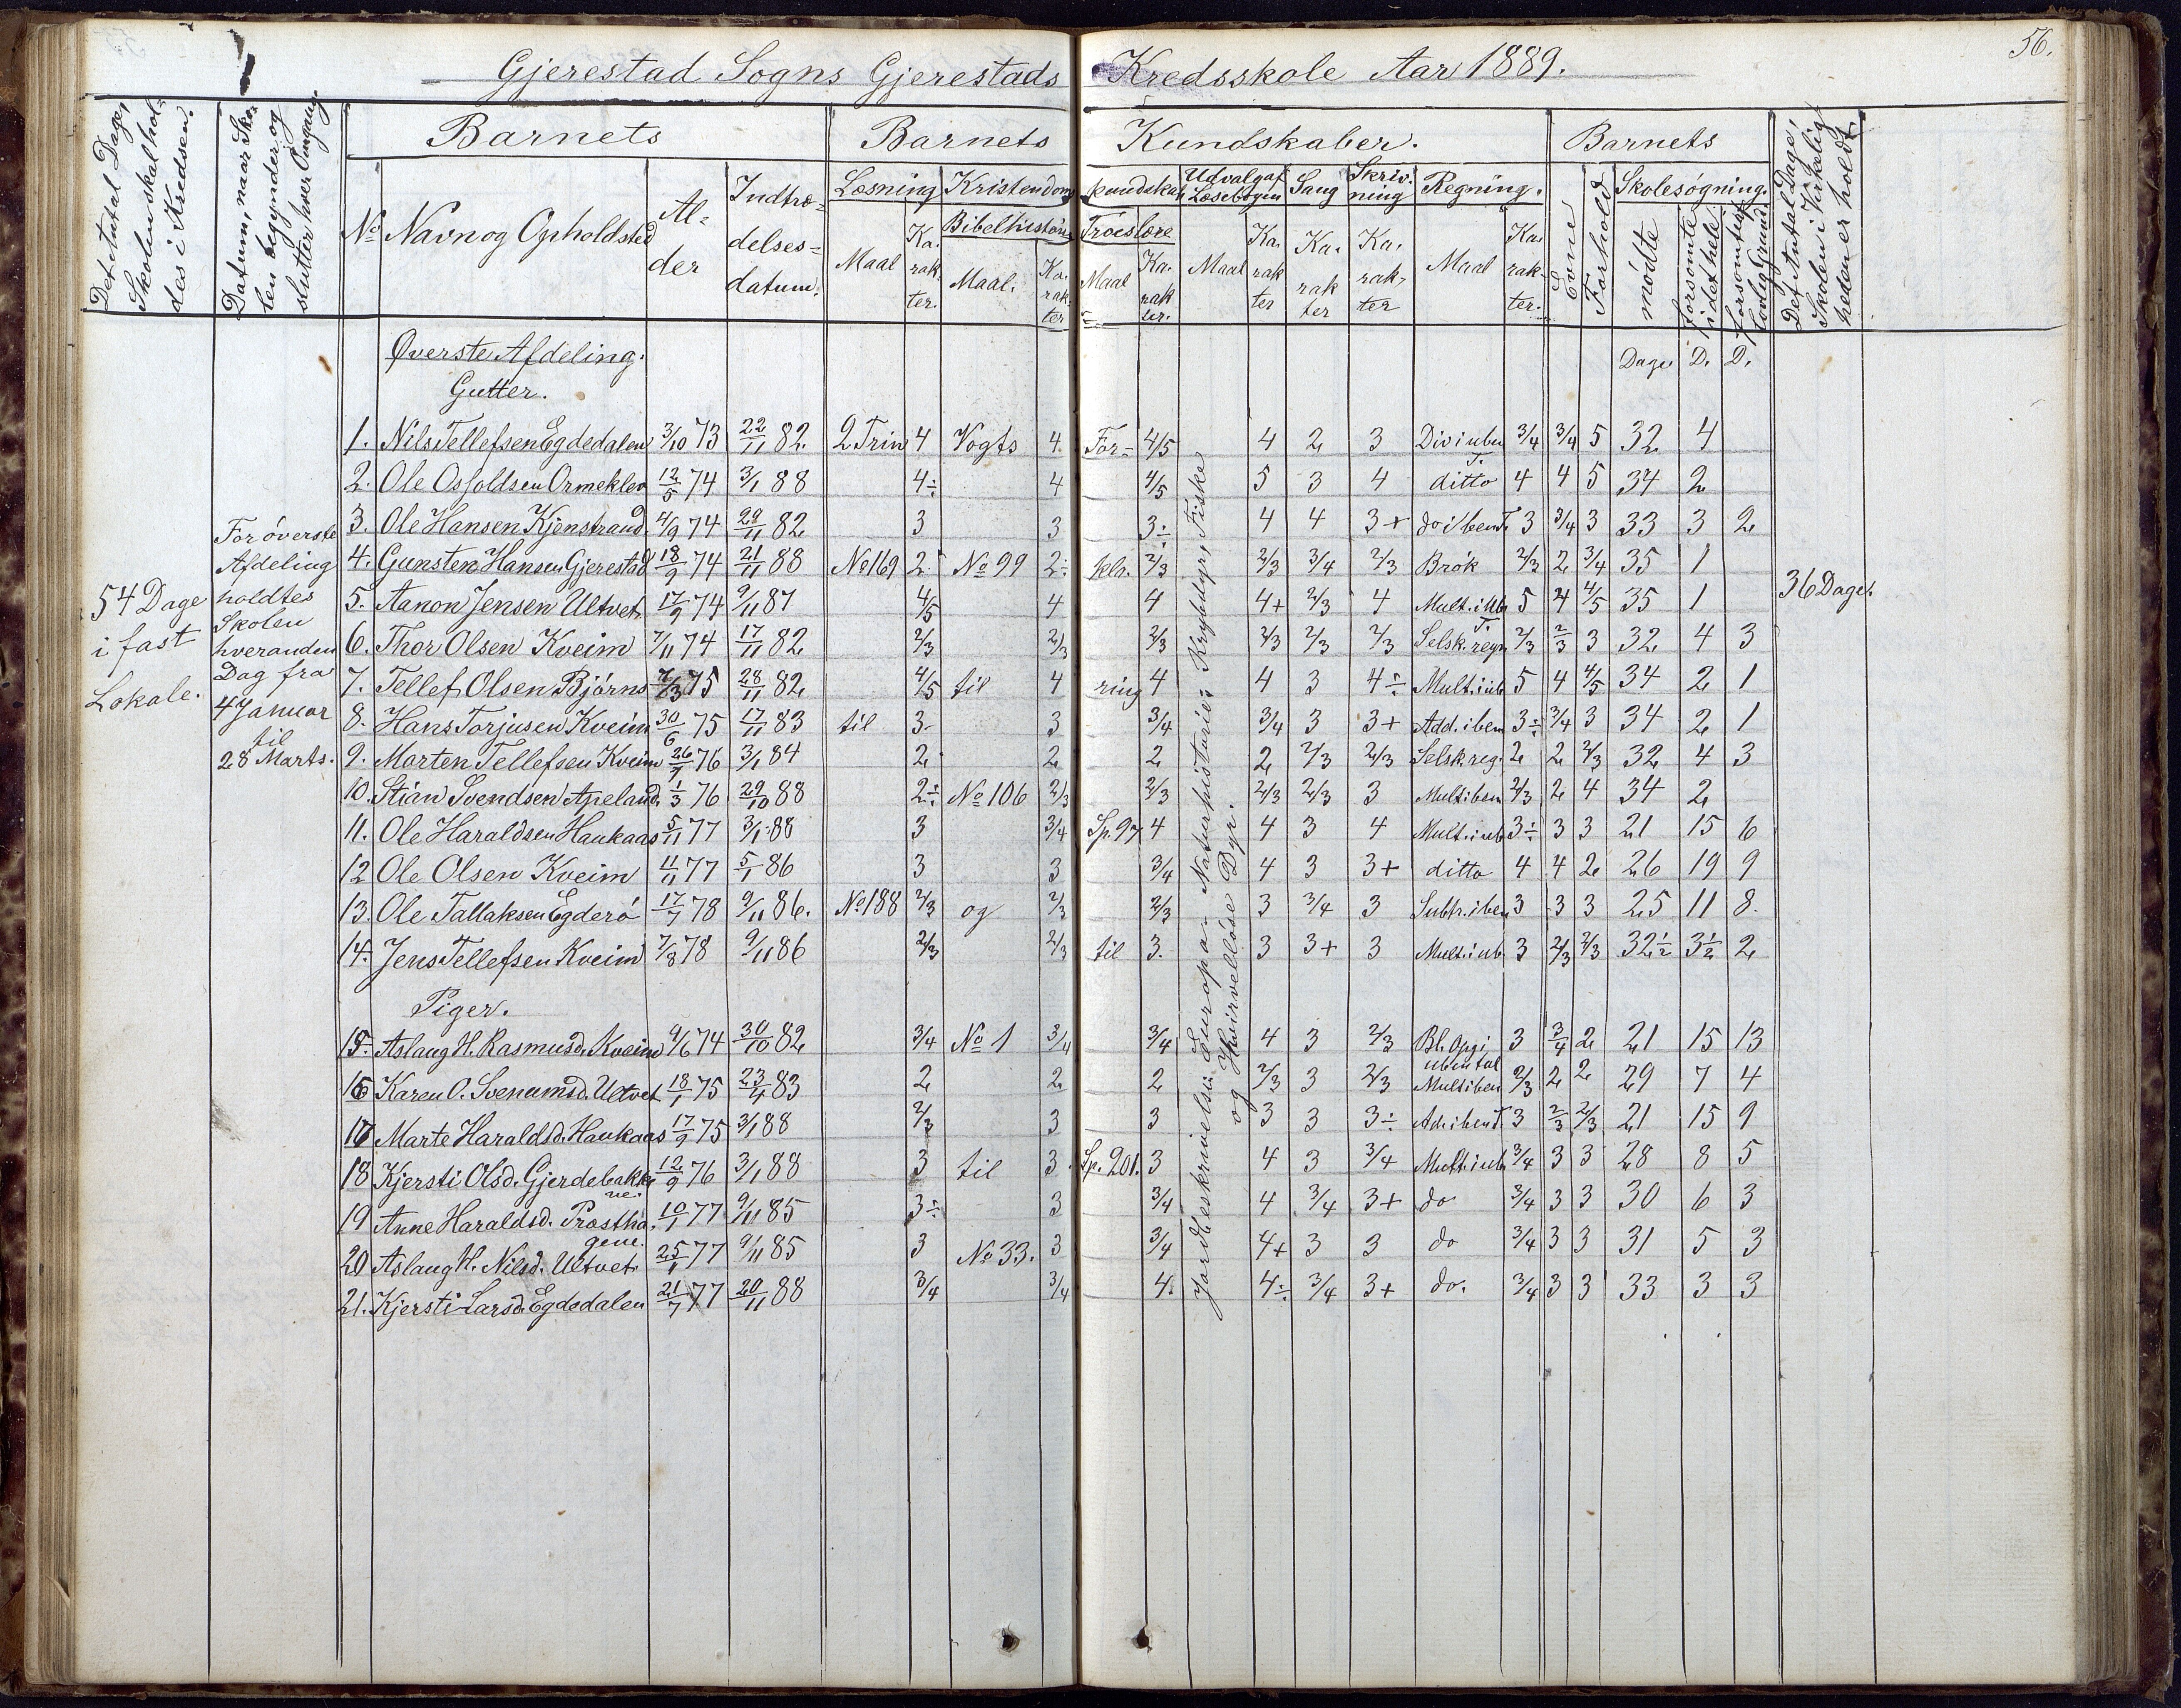 56.
Gjerestad Sogns Gjerestads Kredsskole Aar 1889.
Det Antal Dage, Skolen skal holdes i Kredsen.
Datum, naar Skolen begynder og slutter hver Omgang.
Barnets
Barnets Kundskaber.
Barnets
Det Antal Dage, Skolen i Virkeligheden er holdt.
No Navn og Opholdsted
Alder
Indtrædelsesdatum.
Læsning
Kristendoms kundskab
Udvalg af Læsebogen
Sang
Skrivning
Regning.
Evne
Forhold
Skolesøgning.
Bibelhistorie
Troeslære
Maal Karakter. Maal. Karakter Maal Karakter. Maal Karakter Karakter Karakter Maal Karakter.
mødte
forsømte i det hele
Dage D. D.
Øverste Afdeling.
Gutter.
54 Dage
i fast
Lokale.
For øverste
Afdeling
holdtes
Skolen
hveranden
Dag fra
4 Januar
til
28 Marts.
36 Dage.
Jordbeskrivelse: Europa - Naturhistorie: Krybdyr, Fiske
og Hvirvelløse Dyr.
1. Nils Tellefsen Egdedalen 3/10 73 22/11 82. 2 Trin 4 Vogts 4. For- 4/5 4 2 3 Div i uben T. 3/4 3/4 5 32 4
2. Ole Osfoldsen Ormeklev 12/5 74 3/1 88 4÷ 4 4/5 5 3 4 ditto 4 4 5 34 2
3. Ole Hansen Kjenstraud 4/9 74 29/11 82 3 3 3÷ 4 4 3+ do i ben T. 3 3/4 3 33 3 2
4. Gunsten Hansen Gjerestad 18/9 74 21/11 88 No 169 2. No 99 2÷ kla. 2/3 2/3 3/4 2/3 Brøk 2/3 2 3/4 35 1
5. Aanon Jensen Ultvet 17/9 74 9/11 87 4/5 4 4 4+ 2/3 4 Mult. i ub T. 5 4 4/5 35 1
6. Thor Olsen Kveim 7/11 74 17/11 82 2/3 2/3 2/3 2/3 2/3 2/3 Selsk. regn 2/3 2/3 3 32 4 3
7. Tellef Olsen Bjørns 7/3 75 28/11 82 4/5 til 4 ring 4 4 3 4÷ Mult. i ub 5 4 4/5 34 2 1
8. Hans Torjusen Kveim 30/6 75 17/11 83 til 3. 3 3/4 3/4 3 3+ Add. i ben 3÷ 3/4 3 34 2 1
9. Marten Tellefsen Kveim 26/7 76 3/1 84 2 2 2 2 2/3 2/3 Selsk. reg. 2 2 2/3 32 4 3
10. Stian Svendsen Apeland 1/3 76 29/10 88 2÷ No 106 2/3 2/3 2/3 2/3 3 Mult i ben 2/3 2 4 34 2
11. Ole Haraldsen Haukaas 5/11 77 3/1 88 3 3/4 Sp. 97. 4 4 3 4 Mult. i ub 3÷ 3 3 21 15 6
12 Ole Olsen Kveim 4/11 77 5/1 86 3 3 3/4 4 3 3+ ditto 4 4 2 26 19 9
13. Ole Tallaksen Egderø 17/7 78 9/11 86. No 188 2/3 og 2/3 2/3 3 3/4 3 Subtr. i ben 3 3 3 25 11 8.
14. Jens Tellefsen Kveim 7/8 78 9/11 86 2/3 2/3 til 3. 3 3+ 3 Mult. i ub 3 2/3 2/3 32½ 3½ 2
Piger.
15. Aslaug H. Rasmusd. Kveim 9/6 74 30/10 82 3/4 No 1 3/4 3/4 4 3 2/3 Bl. Opg i uben tal 3 3/4 2 21 15 13
16 Karen O. Svenumsd. Ultvet 18/1 75 23/4 83 2 2 2 2/3 3 2/3 Mult i ben 2/3 2 2 29 7 4
17 Marte Haraldsd. Haukaas 17/9 75 3/1 88 2/3 3 3 3 3 3÷ Ad. i ben T 3 2/3 2/3 21 15 9
18 Kjersti Olsd. Gjerdebakkene. 12/9 76 3/1 88 3 til 3. Sp. 201. 3 4 3 3/4 Mult. i ub 3/4 3 3 28 8 5
19 Anne Haraldsd. Prosthagene. 10/1 77 9/11 85 3÷ 3 3/4 4 3/4 3+ do 3/4 3 3 30 6 3
20 Aslaug H. Nilsd. Ultvet 25/1 77 9/11 85 3 No 33. 3 3/4 4+ 3 3 do 3/4 3 3 31 5 3
21. Kjersti Larsd. Egdedalen 21/7 77 20/11 88 3/4 3/4 4. 4÷ 3/4 3+ do. 3/4 3 3 33 3 3